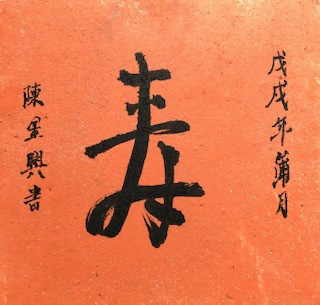 戊戌年蒲月
寿
陳星興書